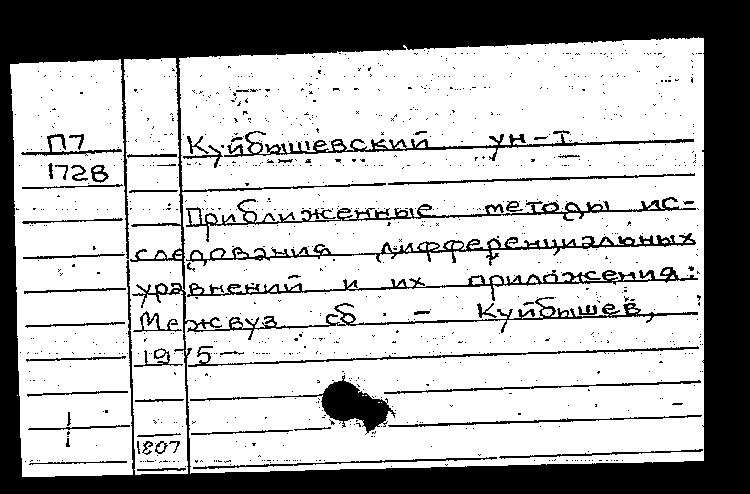 П7 Куйбышевский ун-т
172В
Приближенные методы ис-
следования дифференциальных
уравнений и их приложения:
Межвуз сб - Куйбышев,
1975-
1807